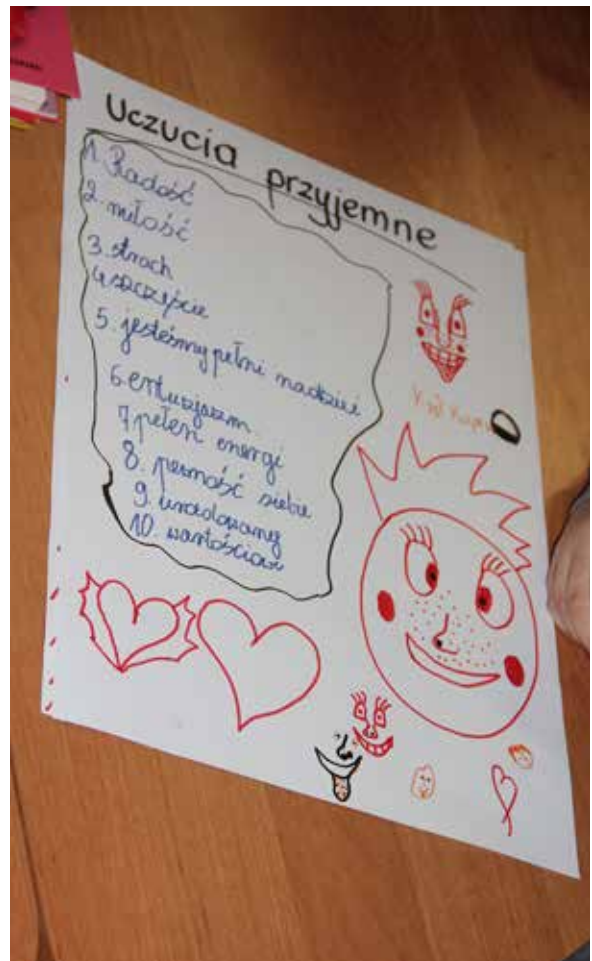 Uczucia przyjemne
1. Radość
2. miłość
3. strach
4. szczęście
5. jesteśmy pełni nadziei
6. entuzjazm
7. pełen energi
8. pewność siebie
9. uradowany
10.